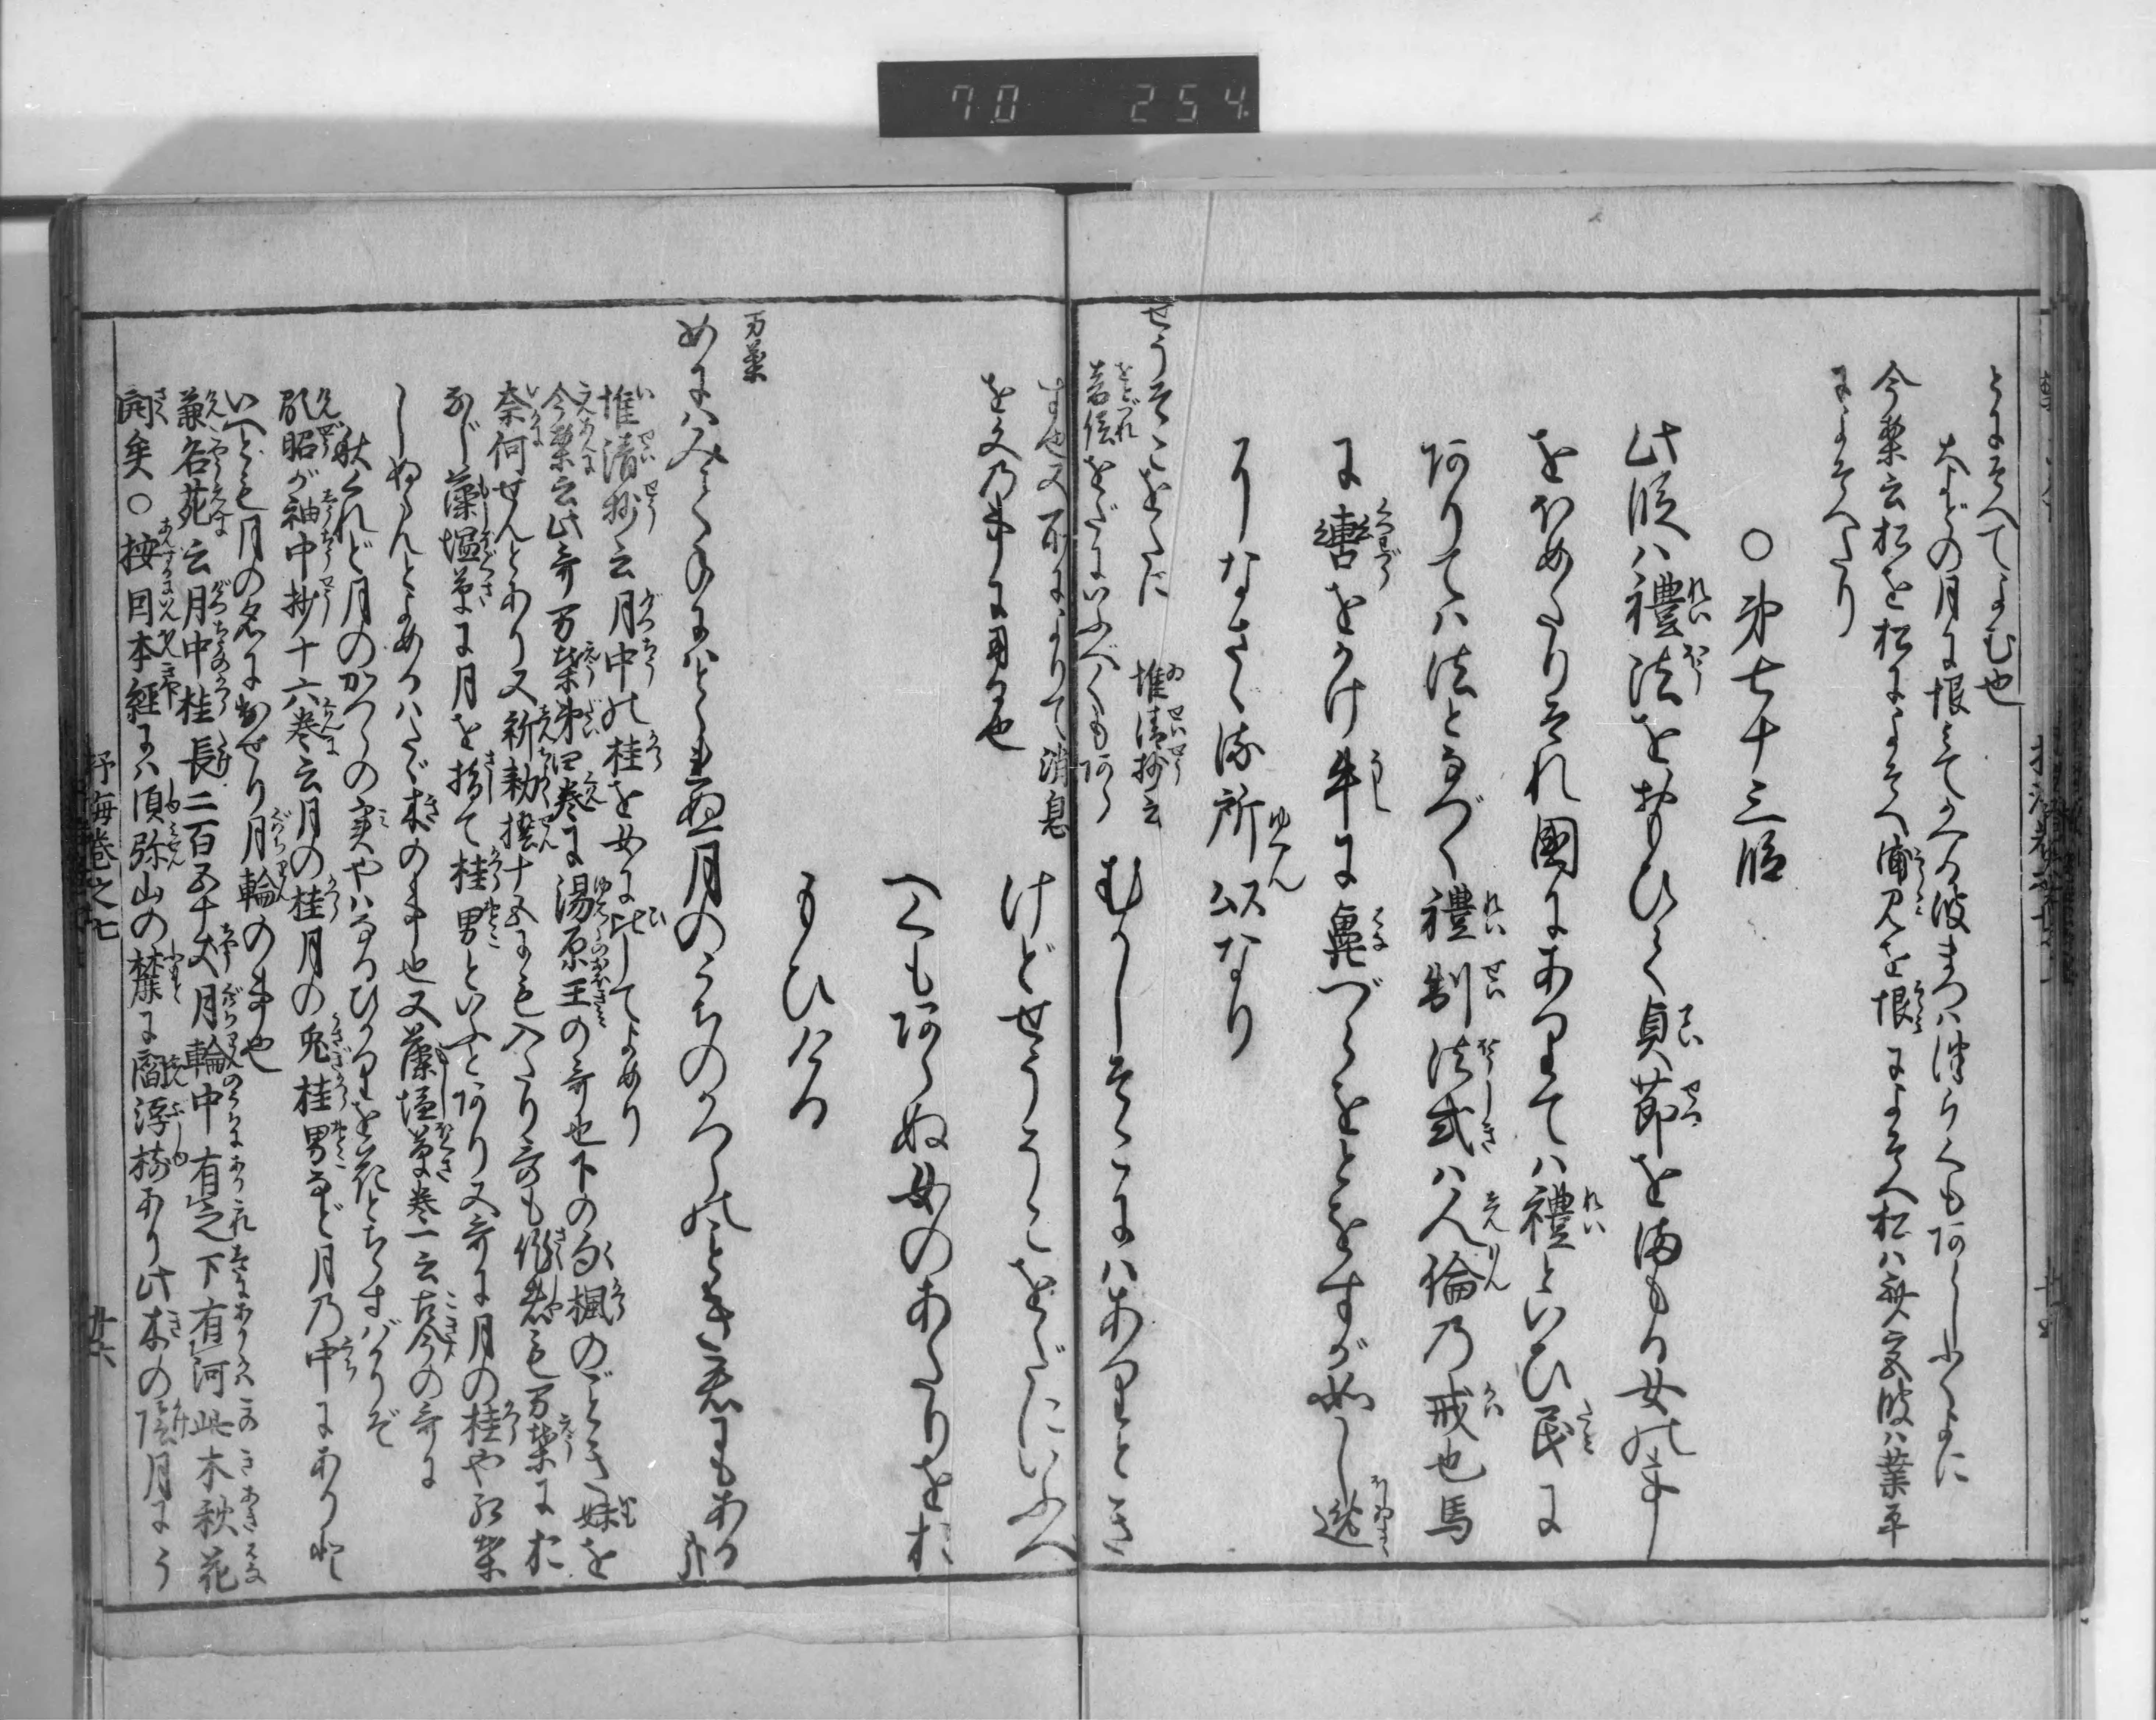 70 254
とよそへてよむ也
大よどの月に恨みてかへる波まつはつらくも
今案云松を松によそへ浦見を恨によそへ松は
波は業平
によそへたり
○第七十三段
此段は禮法をおもひて貞節をまもる女の事
をほめたりそれ國にありては禮といひ民に
ありては法となづく禮制法式は人倫乃戒也馬
に轡をかけ牛に鼻づらをとをすが如し
りなさく所以なり
むかしそこにはありときけ
せうそこをだに 惟清抄云
音信をだにいふべくもあら
ず也又所によりて消息
を文乃事に用る也
けどせうそこをだにいふべ
くもあらぬ女のあたりをお
もひける
万葉
めには見て手にはとられぬ月のうちのかつらのごとき君にもある哉
惟清抄云月中の桂を女に比してよめり
今案云此哥万葉第四巻に湯原王の哥也下の句楓のごとき妹を
奈何せんとあり又新勅撰十五にも入たり哥も作者も万葉にお
なじ藻塩草に月を指て桂男といふとあり又哥に月の桂や紅葉
しぬらんとよめるはたゞ木の事也又藻塩草巻一云古今の哥に
秋くれど月のかつらの実やはなるひかりを花とちらすばかりぞ
顕昭が袖中抄十六巻云月の桂月の兎桂男など月乃中にありと
いへども月の名に出せり月輪の事也
兼名苑云月中桂長二百五十丈月輪中有之下有河此木秋花
開矣○按因本經には須弥山の麓に閻浮樹あり此木の陰月にう
抒海巻之七
廿六